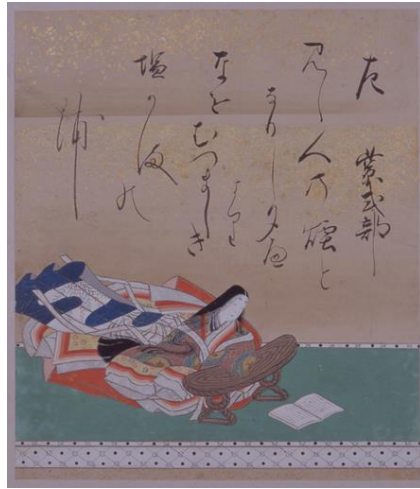 左　紫式部
見し人の煙と
なりし夕へ
より
なそむつましき
塩かまの
浦